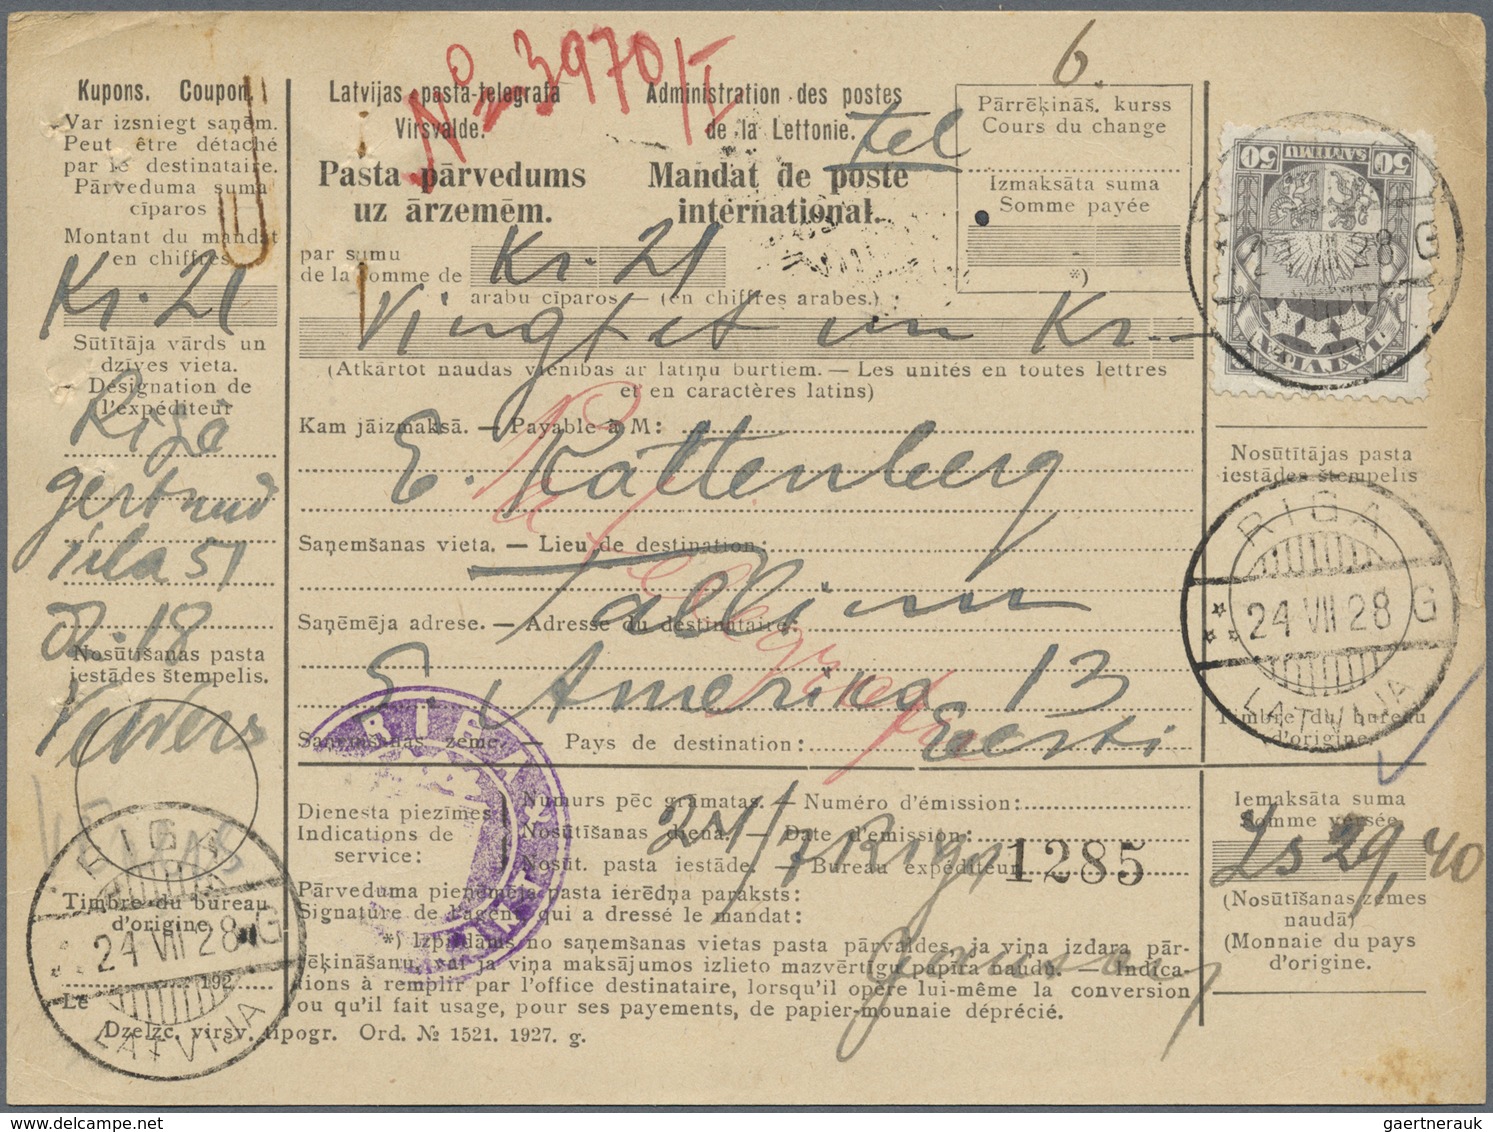 No 3970/I
6.
Kupons. Coupon.
Var izsniegt saņem.
Peut être détaché
par le destinataire.
Pārveduma suma
cīparos
Montant du mandat
en chiffres
Kr. 21
Sūtītāja vārds un
dzīves vieta.
Désignation de
l'expéditeur
Riga
gertrud
iela 51
dz. 18
Nosūtīšanas pasta
iestādes stempelis.
RIGA
24 VII 28 G
LATVIJA
Timbre du bureau
d'origine
192
Le
Latvijas pasta-telegrafa
Virsvalde.
Pasta pārvedums
uz ārzemēm.
Administration des postes
de la Lettonie.
tel
Mandat de poste
international.
Pārrēķināš. kurss
Cours du change
Izmaksāta suma
Somme payée
*)
par sumu
de la somme de
Kr. 21
arabu cīparos — (en chiffres arabes.)
Vingt et un Kr.—
(Atkārtot naudas vienības ar latiņu burtiem. — Les unités en toutes lettres
et en caractères latins)
Kam jāizmaksā. — Payable à M:
E. Kattenberg
Saņemšanas vieta. — Lieu de destination:
Tallinn
Saņēmēja adrese. — Adresse du destinataire:
S. Amerika 13
Saņemšanas zeme. — Pays de destination:
Eesti
RIGA
Dienesta piezīmes
Indications de
service:
Numurs pēc grāmatas. — Numéro d'émission:
1285
Nosūtīšanas diena. — Date d'émission:
24/7
Nosūt. pasta iestāde. — Bureau expéditeur
Riga
Pārveduma pieņēmēja pasta ierēdņa paraksts:
Signature de l'agent qui a dressé le mandat:
*) Izpildāms no saņemšanas vietas pasta pārvaldes, ja viņa izdara pār-
rēķināšanu, vai ja viņa maksājumos izlieto mazvērtīgu papīra naudu. — Indica-
tions à remplir par l'office destinataire, lorsqu'il opère lui-même la conversion
ou qu'il fait usage, pour ses payements, de papier-monnaie déprécié.
Dzelzc. virsv. tipogr. Ord. № 1521. 1927. g.
50 50
SANTIMU
LATVIJA
24 VII 28 G
Nosūtītājas pasta
iestādes štempelis
RIGA
24 VII 28 G
LATVIJA
Timbre du bureau
d'origine
Iemaksāta suma
Somme versée
Ls 29,40
(Nosūtīšanas zemes
naudā)
(Monnaie du pays
d'origine.
gaertnerauk